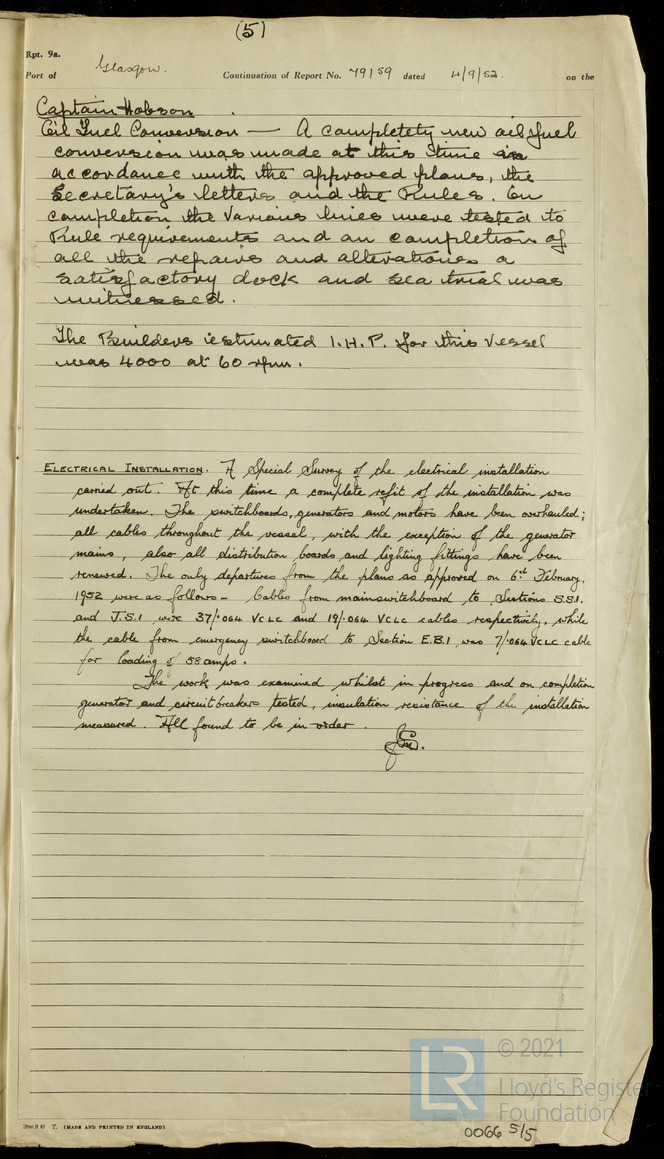 (5)
Rpt. 9a.
Port of Glasgow. Continuation of Report No. 79159 dated 4/9/52. on the
Captain Hobson
Oil Fuel Conversion — A completely new oil fuel
conversion was made at this time in
accordance with the approved plans, the
Secretary's letters and the Rules. On
completion the various lines were tested to
Rule requirements and on completion of
all the repairs and alterations a
satisfactory dock and sea trial was
witnessed.
The Builders estimated I.H.P. for this vessel
was 4000 at 60 rpm.
ELECTRICAL INSTALLATION. A Special Survey of the electrical installation
carried out. At this time a complete refit of the installation was
undertaken. The switchboards, generators and motors have been overhauled;
all cables throughout the vessel, with the exception of the generator
mains, also all distribution boards and lighting fittings have been
renewed. The only departures from the plans as approved on 6th February,
1952 were as follows – Cables from main switchboard to Sections S.S.1.
and J.S.1 were 37/.064 VCLC and 19/.064 VCLC cables respectively, while
the cable from emergency switchboard to Section E.B.1 was 7/.064 VCLC cable
for loading of 58 amps.
The work was examined whilst in progress and on completion
generator and circuit breakers tested, insulation resistance of the installation
measured. All found to be in order.
T. (MADE AND PRINTED IN ENGLAND)
LR © 2021
Lloyd's Register
Foundation
0066 5/5